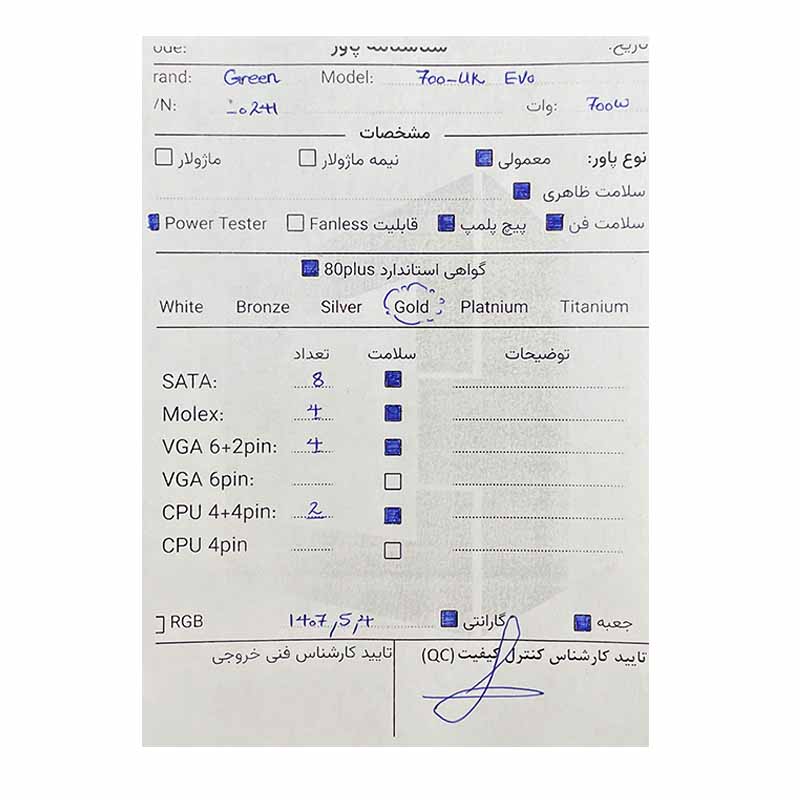 شناسنامه پاور
Brand: Green Model: 700-UK Evo
S/N: 0241 وات: 700W
مشخصات
نوع پاور: معمولی نیمه ماژولار ماژولار
سلامت ظاهری
سلامت فن پیچ پلمپ قابلیت Fanless Power Tester
گواهی استاندارد 80plus
White Bronze Silver Gold Platnium Titanium
تعداد سلامت توضیحات
SATA: 8
Molex: 4
VGA 6+2pin: 4
VGA 6pin:
CPU 4+4pin: 2
CPU 4pin
جعبه گارانتی 1407,5,4 RGB
تایید کارشناس کنترل کیفیت (QC) تایید کارشناس فنی خروجی